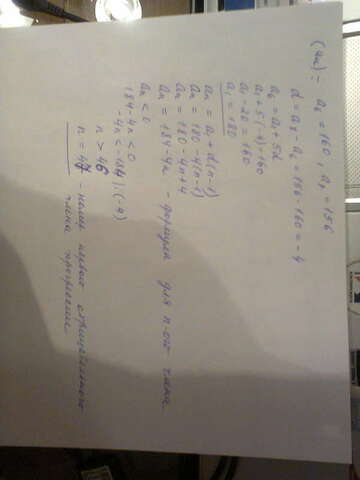 (4н) – a₆ = 160, a₇ = 156
d = a₇ - a₆ = 156 - 160 = -4
a₆ = a₁ + 5d
a₁ + 5·(-4) = 160
a₁ - 20 = 160
a₁ = 180
aₙ = a₁ + d(n-1)
aₙ = 180 - 4(n-1)
aₙ = 180 - 4n + 4
aₙ = 184 - 4n - формула для n-ого члена
aₙ < 0
184 - 4n < 0
-4n < -184 | :(-4)
n > 46
n = 47 - номер первого отрицательного
члена прогрессии.